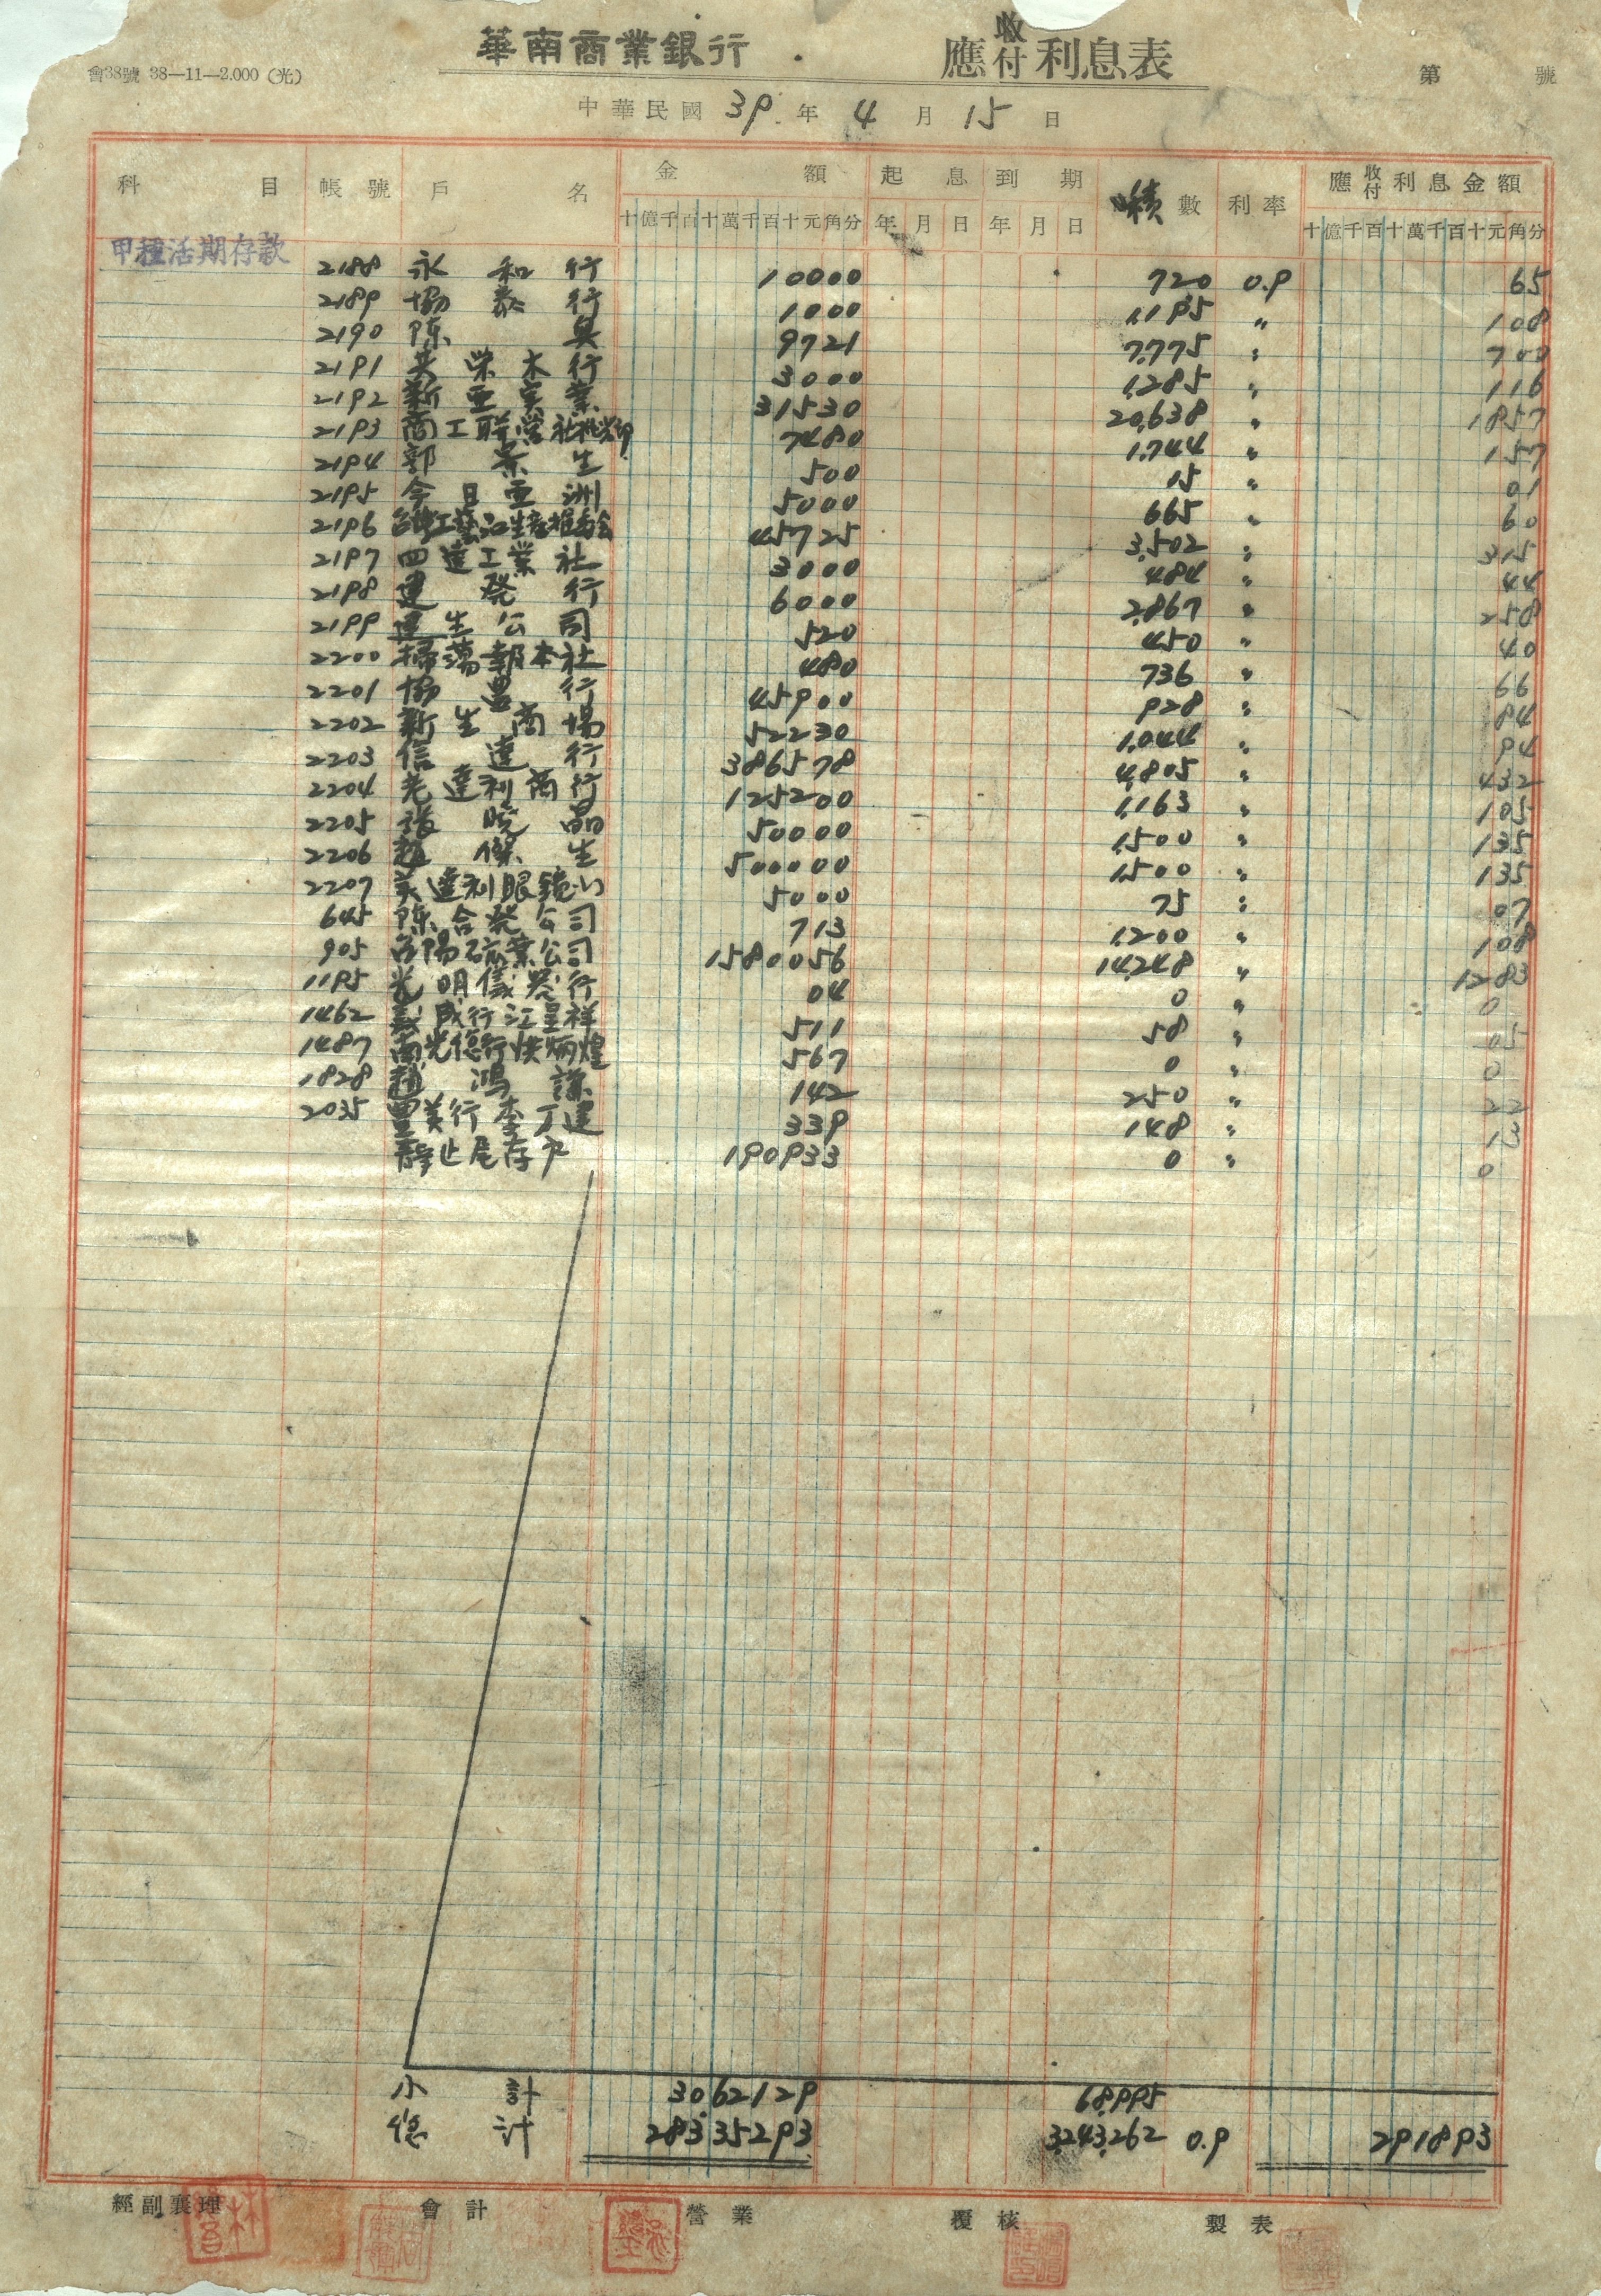 華南商業銀行 應收付利息表
會38號 38—11—2.000 (光) 第 號
中華民國 39 年 4 月 15 日
科目 帳號 戶名 金額 起息 到期 積數 利率 應收付利息金額
十億千百十萬千百十元角分 年月日 年月日 十億千百十萬千百十元角分
甲種活期存款
2188 永和行 10000 720 0.9 65
2189 協泰行 1000 1,195 〃 108
2190 陳 9721 7,775 〃 700
2191 共榮木行 3000 1,285 〃 116
2192 新亜実業 31530 20,638 〃 1857
2193 商工聯営社 7480 1,744 〃 157
2194 郭景生 500 15 〃 01
2195 今日亜洲 5000 665 〃 60
2196 45725 3,502 〃 315
2197 四達工業社 3000 484 〃 44
2198 建発行 6000 2,867 〃 258
2199 建生公司 520 450 〃 40
2200 掃蕩報本社 480 736 〃 66
2201 協豊行 45900 928 〃 84
2202 新生商場 52230 1,044 〃 94
2203 信達行 386578 4,805 〃 432
2204 老達利商行 125200 1,163 〃 105
2205 張晩晶 50000 1,500 〃 135
2206 趙傑生 500000 1,500 〃 135
2207 美達利眼鏡公 5000 75 〃 07
645 陳合発公司 713 1,200 〃 108
905 陽砿業公司 1580056 14,248 〃 1283
1195 光明儀器行 04 0 〃 0
1462 義成行江呈祥 511 58 〃 05
1487 南光信行炳煌 567 0 〃 0
1828 趙鴻謙 142 250 〃 22
2035 豊美行李丁達 339 148 〃 13
靜止尾存戸 190933 0 〃 0
小計 3062129 68,995
總計 28335293 3,243,262 0.9 291893
經副襄理 會計 營業 覆核 製表